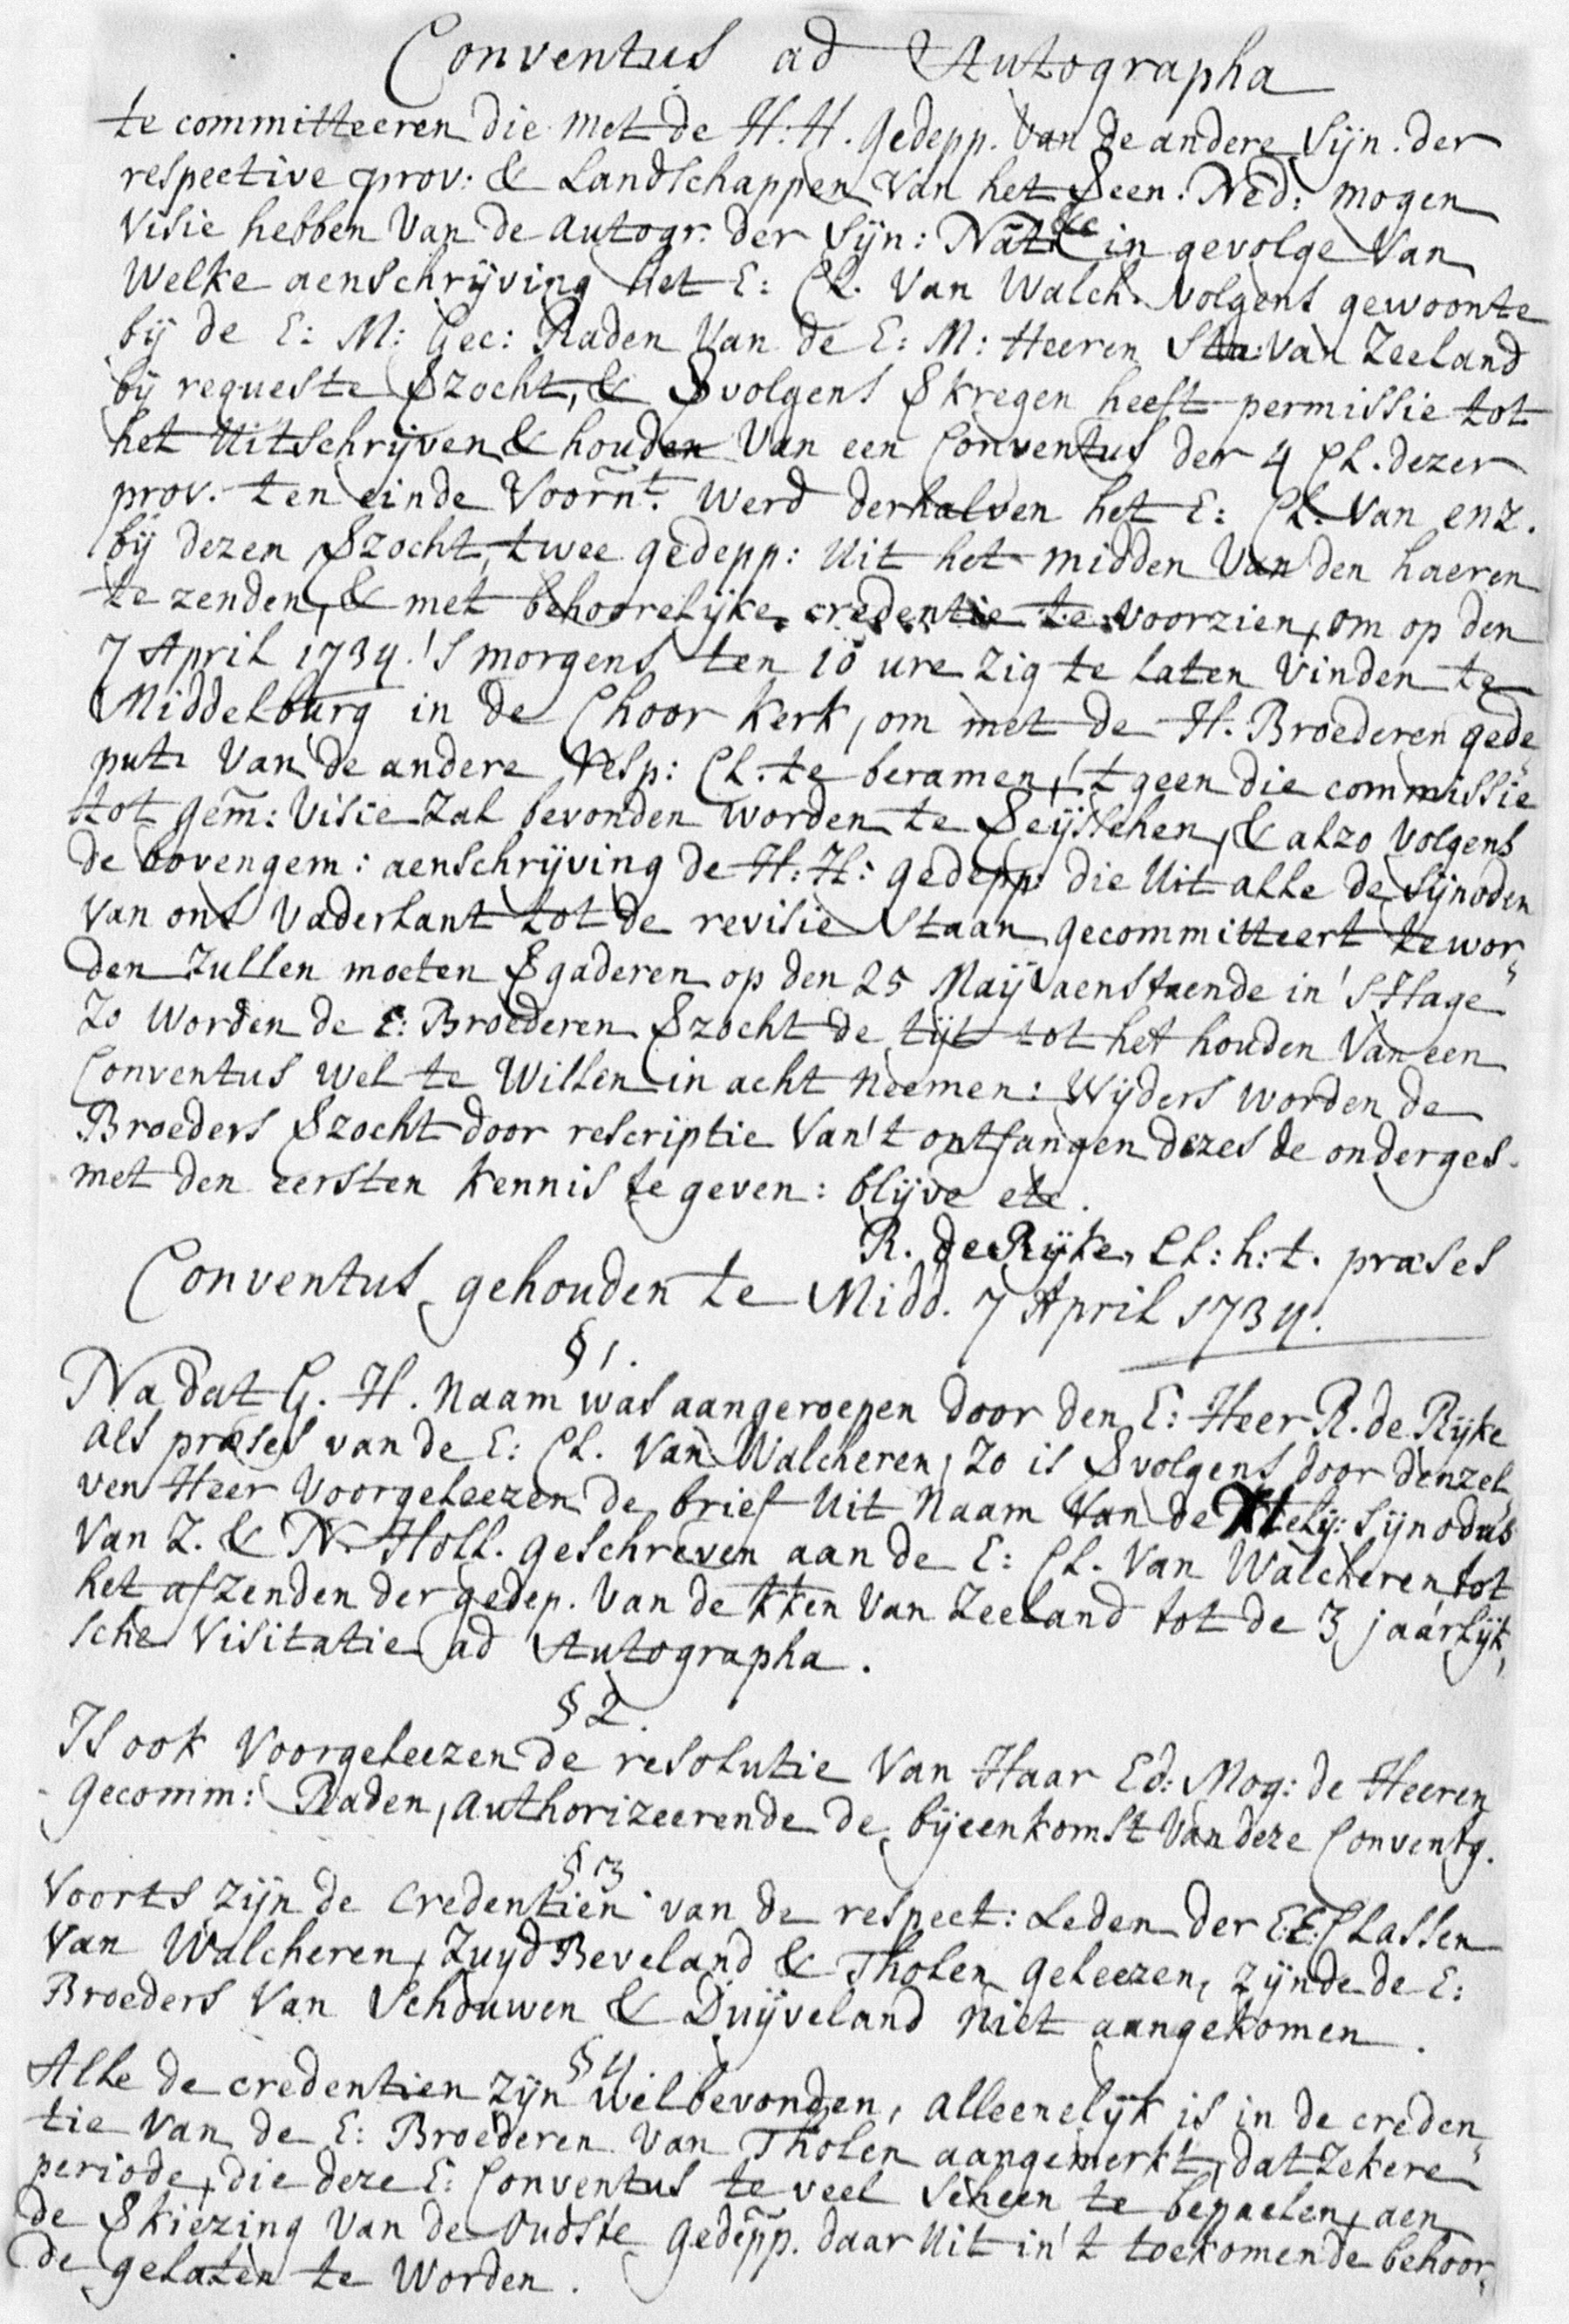 Conventus ad Autographa
te committeeren die met de H.H. gedepp. van de andere Sijn. der
respective prov: & Landschappen van het §een. Ned: mogen
visie hebben van de autogr. der Sijn: Natle in gevolge van
welke aenschrijving het E: Cl. van Walch. volgens gewoonte
bij de E: M: Gec: Raden van de E: M: Heeren Sta: van Zeeland
bij requeste §zocht, & §volgens §kregen heeft permissie tot
het uitschrijven & houden van een Conventus der 4 Cl. dezer
prov. ten einde voorñt. werd derhalven het E: Cl. van enz.
bij dezen §zocht, twee gedepp: uit het midden van den haeren
te zenden, & met behoorelijke credentie te voorzien, om op den
7 April 1734. 's morgens ten 10 ure zig te laten vinden te
Middelburg in de Choor kerk, om met de H. Broederen gede„
put: van de andere resp: Cl. te beramen, 't geen die commissie
tot gem̃: visie zal bevonden worden te §eijschen, & alzo volgens
de bovengem: aenschrijving de H: H: gedepp: die uit alle de Sijnoden
van ons vaderlant tot de revisie staan gecommitteert te wor„
den zullen moeten §gaderen op den 25 Maij aenstaende in 's Hage
Zo worden de E: Broederen §zocht de tijt tot het houden van een
Conventus wel te willen in acht neemen: Wijders worden de
Broeders §zocht door rescriptie van 't ontfangen dezes de onderges.
met den eersten kennis te geven: blijve etc.
R. de Rijke, Cl: h: t. præses
Conventus gehouden te Midd. 7 April 1734.
§ 1.
Na dat G. H. Naam was aangeroepen door den E: Heer R. de Rijke
als præses van de E: Cl. van Walcheren, zo is §volgens door denzel„
ven Heer voorgeleezen de brief uit naam van de Xtelij: Sijnodus
van Z. & N. Holl. geschreven aan de E: Cl. van Walcheren tot
het afzenden der gedep. van de kken van Zeeland tot de 3 jaarlijk„
sche visitatie ad Autographa.
§ 2.
Is ook voorgeleezen de resolutie van Haar Ed: Mog: de Heeren
Gecomm: Raden, authorizeerende de bijeenkomst van deze Conventg.
§ 3
Voorts zijn de Credentien van de respect: Leden der E.E: Classen
van Walcheren, Zuyd Beveland & Tholen geleezen, zijnde de E:
Broeders van Schouwen & Duijveland niet aangekomen.
§ 4
Alle de credentien zijn wel bevonden, alleenelijk is in de creden„
tie van de E: Broederen van Tholen aangemerkt, dat zekere
periode, die deze E: Conventus te veel scheen te bepaelen, aen
de §kiezing van de oudste gedepp. daar uit in 't toekomende behoor„
de gelaten te worden.